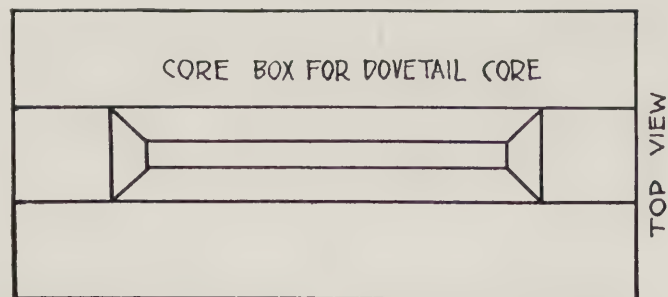 CORE BOX FOR DOVETAIL CORE
TOP VIEW